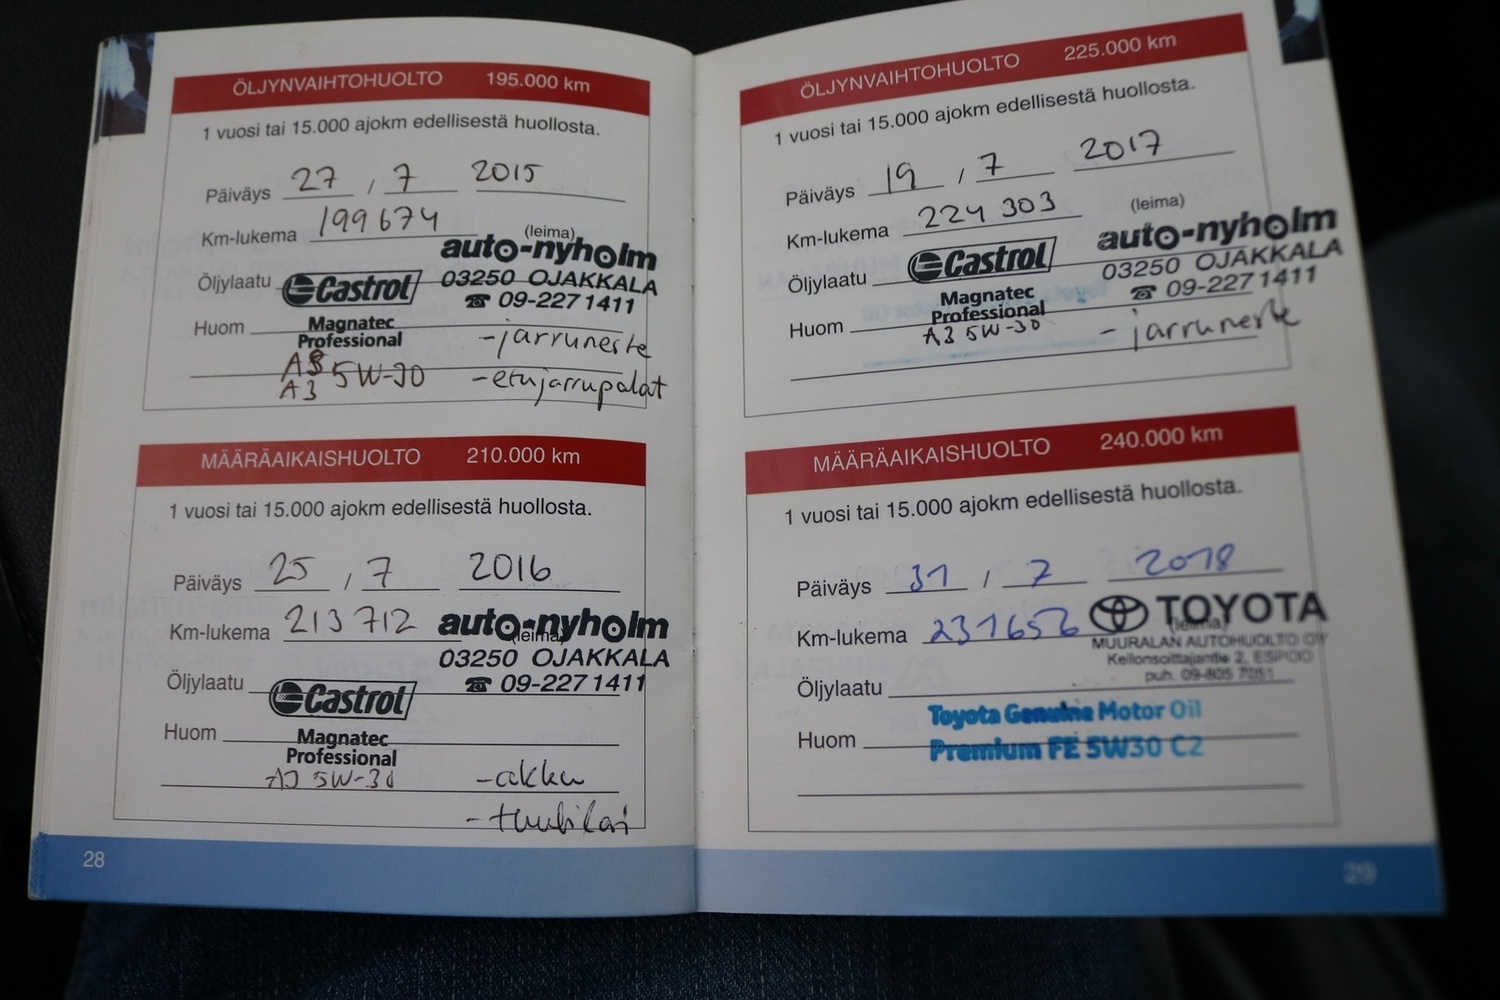 ÖLJYNVAIHTOHUOLTO 195.000 km
1 vuosi tai 15.000 ajokm edellisestä huollosta.
Päiväys 27 / 7 2015
Km-lukema 199674
(leima)
auto-nyholm
03250 OJAKKALA
☎ 09-227 1411
Öljylaatu Castrol
Huom Magnatec
Professional
A3 5W-30
-jarruneste
-etujarrupalat
MÄÄRÄAIKAISHUOLTO 210.000 km
1 vuosi tai 15.000 ajokm edellisestä huollosta.
Päiväys 25 / 7 2016
Km-lukema 213 712
(leima)
auto-nyholm
03250 OJAKKALA
☎ 09-227 1411
Öljylaatu Castrol
Huom Magnatec
Professional
A3 5W-30
-akku
28
ÖLJYNVAIHTOHUOLTO 225.000 km
1 vuosi tai 15.000 ajokm edellisestä huollosta.
Päiväys 19 / 7 2017
Km-lukema 224 303
(leima)
auto-nyholm
03250 OJAKKALA
☎ 09-227 1411
Öljylaatu Castrol
Huom Magnatec
Professional
A3 5W-30
- jarruneste
MÄÄRÄAIKAISHUOLTO 240.000 km
1 vuosi tai 15.000 ajokm edellisestä huollosta.
Päiväys 31 / 7 2018
Km-lukema 231656
(leima)
TOYOTA
MUURALAN AUTOHUOLTO OY
Kellonsoittajantie 2, ESPOO
puh. 09-805 7051
Öljylaatu
Toyota Genuine Motor Oil
Huom Premium FE 5W30 C2
29